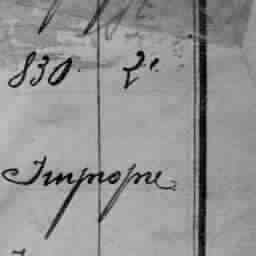 830. 2e.
Impropre